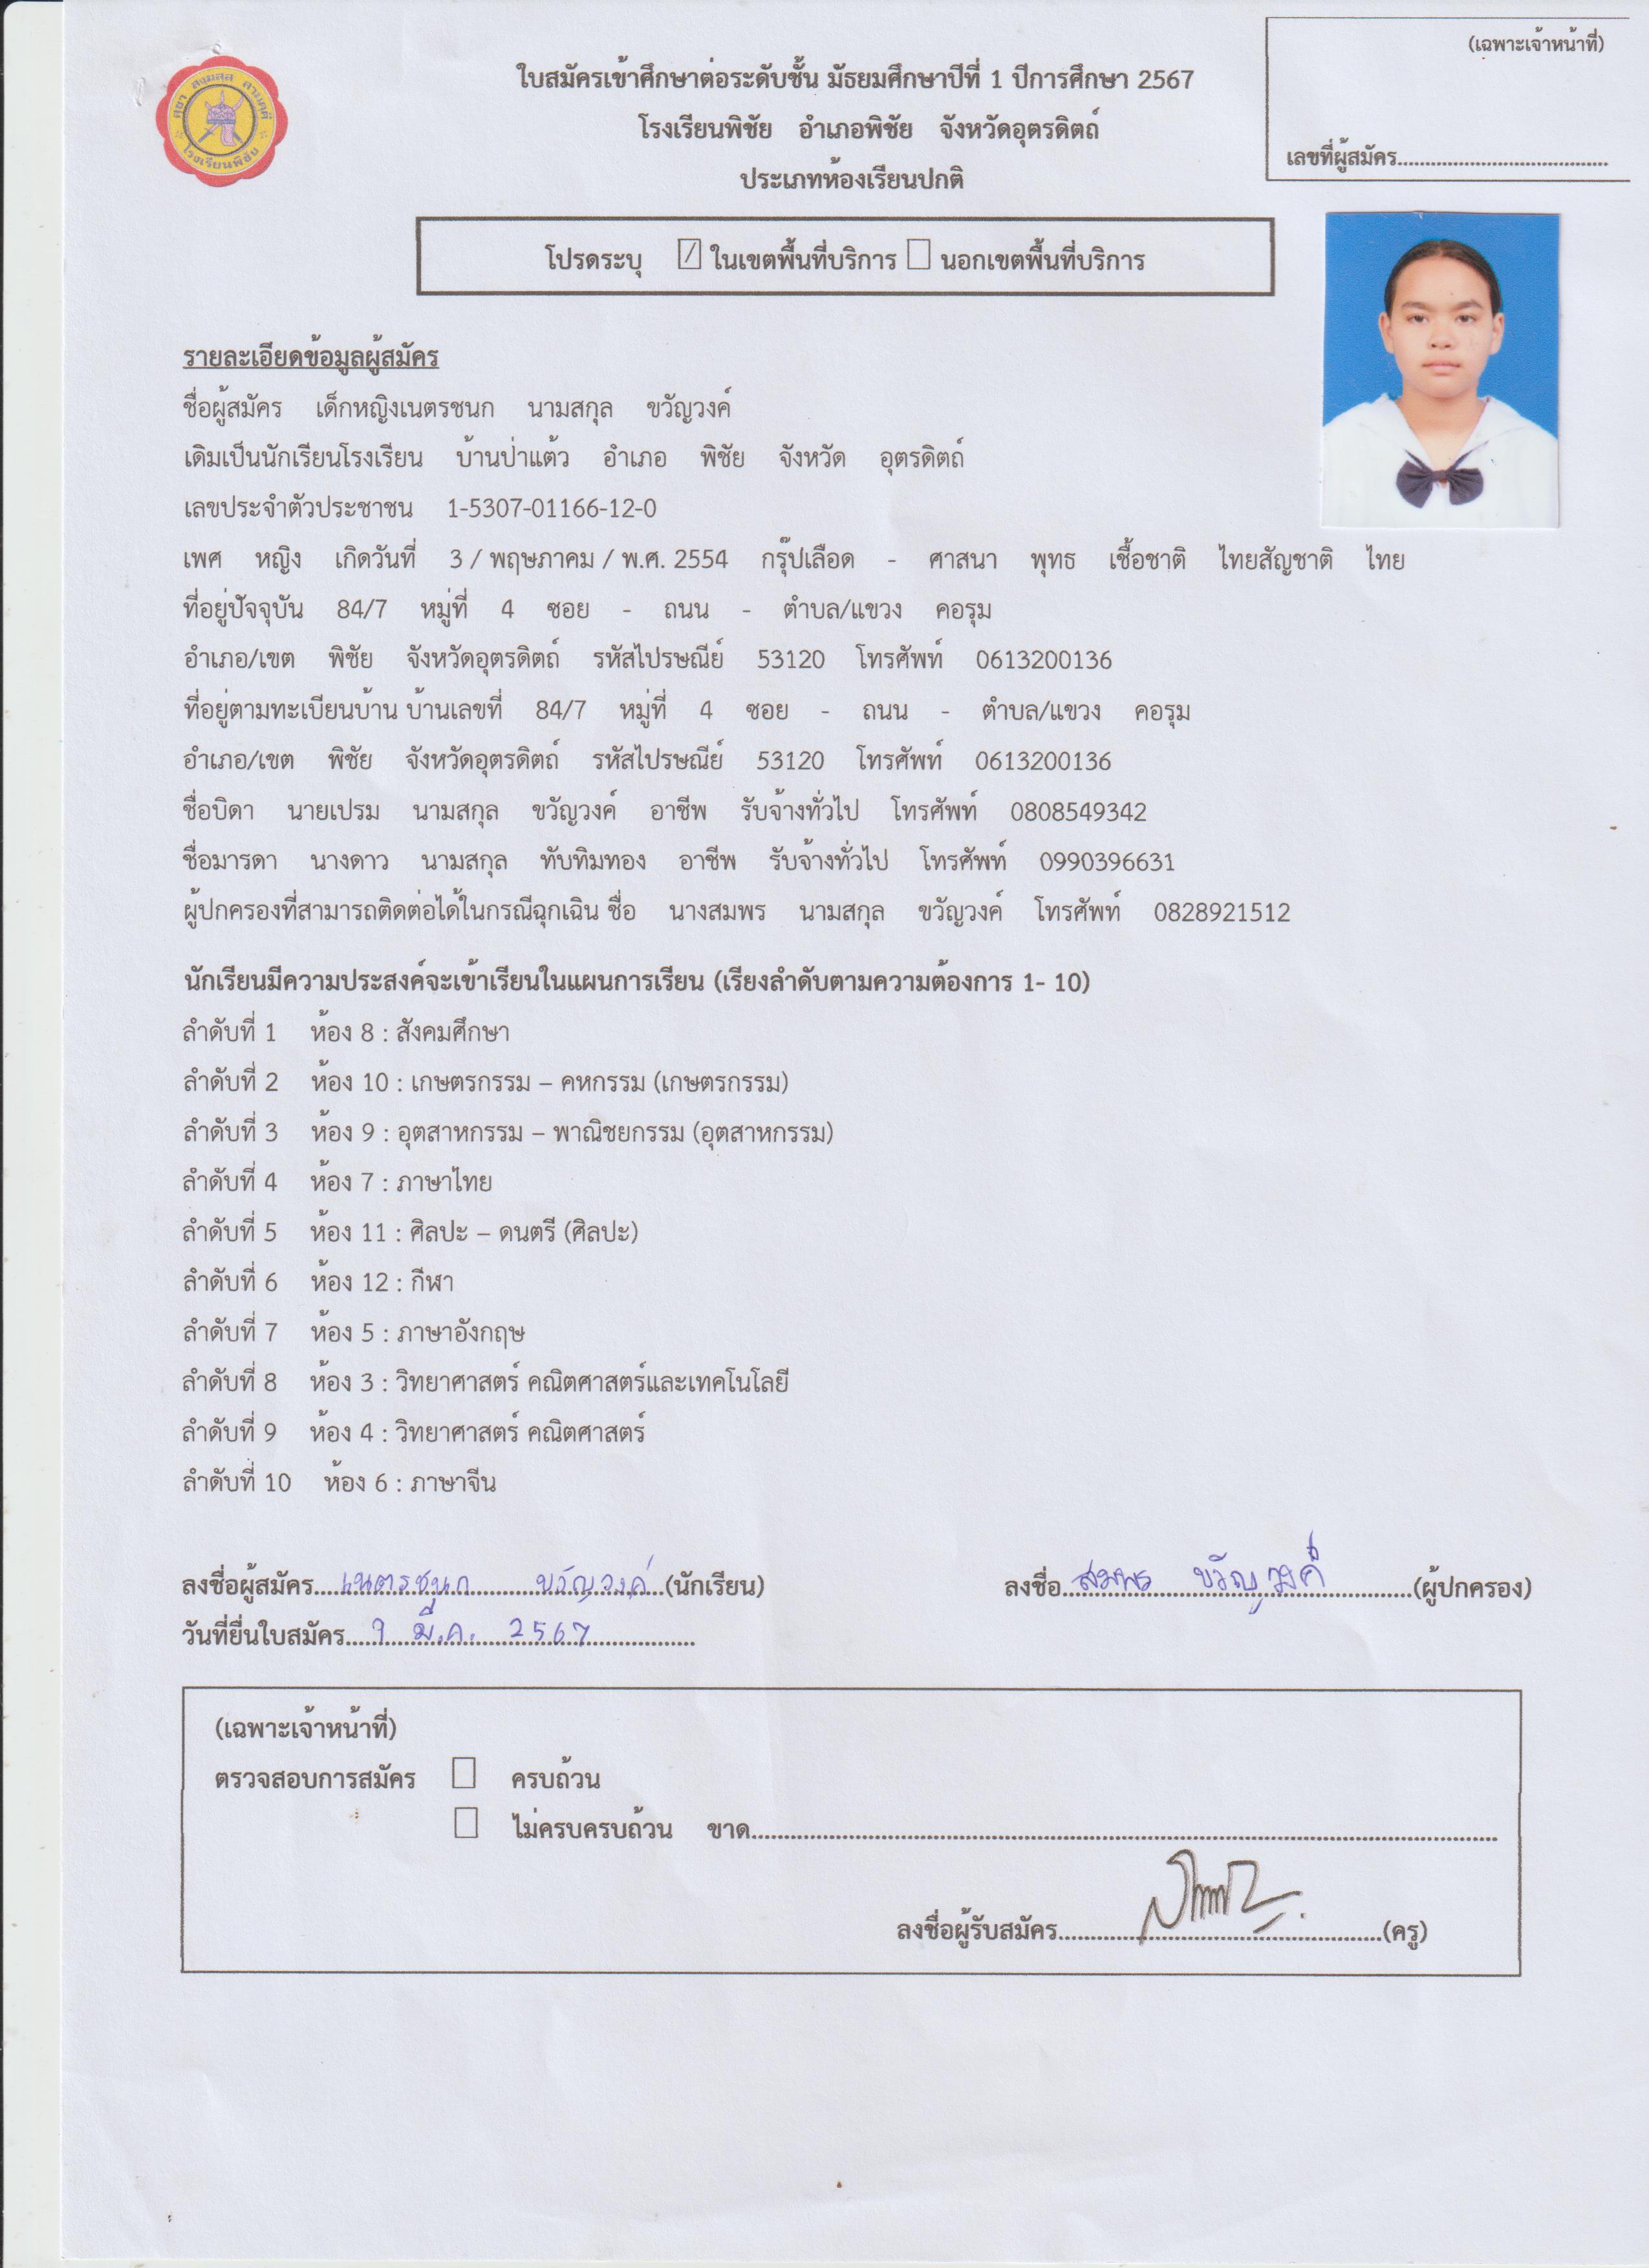 (เฉพาะเจ้าหน้าที่)
ใบสมัครเข้าศึกษาต่อระดับชั้น มัธยมศึกษาปีที่ 1 ปีการศึกษา 2567
โรงเรียนพิชัย อำเภอพิชัย จังหวัดอุตรดิตถ์
เลขที่ผู้สมัคร
ประเภทห้องเรียนปกติ
โรงเรียนพิชัย
โปรดระบุ ☑ ในเขตพื้นที่บริการ ☐ นอกเขตพื้นที่บริการ
รายละเอียดข้อมูลผู้สมัคร
ชื่อผู้สมัคร เด็กหญิงเนตรชนก นามสกุล ขวัญวงค์
เดิมเป็นนักเรียนโรงเรียน บ้านป่าแต้ว อำเภอ พิชัย จังหวัด อุตรดิตถ์
เลขประจำตัวประชาชน 1-5307-01166-12-0
เพศ หญิง เกิดวันที่ 3 / พฤษภาคม / พ.ศ. 2554 กรุ๊ปเลือด - ศาสนา พุทธ เชื้อชาติ ไทยสัญชาติ ไทย
ที่อยู่ปัจจุบัน 84/7 หมู่ที่ 4 ซอย - ถนน - ตำบล/แขวง คอรุม
อำเภอ/เขต พิชัย จังหวัดอุตรดิตถ์ รหัสไปรษณีย์ 53120 โทรศัพท์ 0613200136
ที่อยู่ตามทะเบียนบ้าน บ้านเลขที่ 84/7 หมู่ที่ 4 ซอย - ถนน - ตำบล/แขวง คอรุม
อำเภอ/เขต พิชัย จังหวัดอุตรดิตถ์ รหัสไปรษณีย์ 53120 โทรศัพท์ 0613200136
ชื่อบิดา นายเปรม นามสกุล ขวัญวงค์ อาชีพ รับจ้างทั่วไป โทรศัพท์ 0808549342
ชื่อมารดา นางดาว นามสกุล ทับทิมทอง อาชีพ รับจ้างทั่วไป โทรศัพท์ 0990396631
ผู้ปกครองที่สามารถติดต่อได้ในกรณีฉุกเฉิน ชื่อ นางสมพร นามสกุล ขวัญวงค์ โทรศัพท์ 0828921512
นักเรียนมีความประสงค์จะเข้าเรียนในแผนการเรียน (เรียงลำดับตามความต้องการ 1- 10)
ลำดับที่ 1 ห้อง 8 : สังคมศึกษา
ลำดับที่ 2 ห้อง 10 : เกษตรกรรม – คหกรรม (เกษตรกรรม)
ลำดับที่ 3 ห้อง 9 : อุตสาหกรรม – พาณิชยกรรม (อุตสาหกรรม)
ลำดับที่ 4 ห้อง 7 : ภาษาไทย
ลำดับที่ 5 ห้อง 11 : ศิลปะ – ดนตรี (ศิลปะ)
ลำดับที่ 6 ห้อง 12 : กีฬา
ลำดับที่ 7 ห้อง 5 : ภาษาอังกฤษ
ลำดับที่ 8 ห้อง 3 : วิทยาศาสตร์ คณิตศาสตร์และเทคโนโลยี
ลำดับที่ 9 ห้อง 4 : วิทยาศาสตร์ คณิตศาสตร์
ลำดับที่ 10 ห้อง 6 : ภาษาจีน
ลงชื่อผู้สมัคร เนตรชนก ขวัญวงค์ (นักเรียน) ลงชื่อ สมพร ขวัญวงค์ (ผู้ปกครอง)
วันที่ยื่นใบสมัคร 9 มี.ค. 2567
(เฉพาะเจ้าหน้าที่)
ตรวจสอบการสมัคร ☐ ครบถ้วน
☐ ไม่ครบครบถ้วน ขาด
ลงชื่อผู้รับสมัคร (ครู)